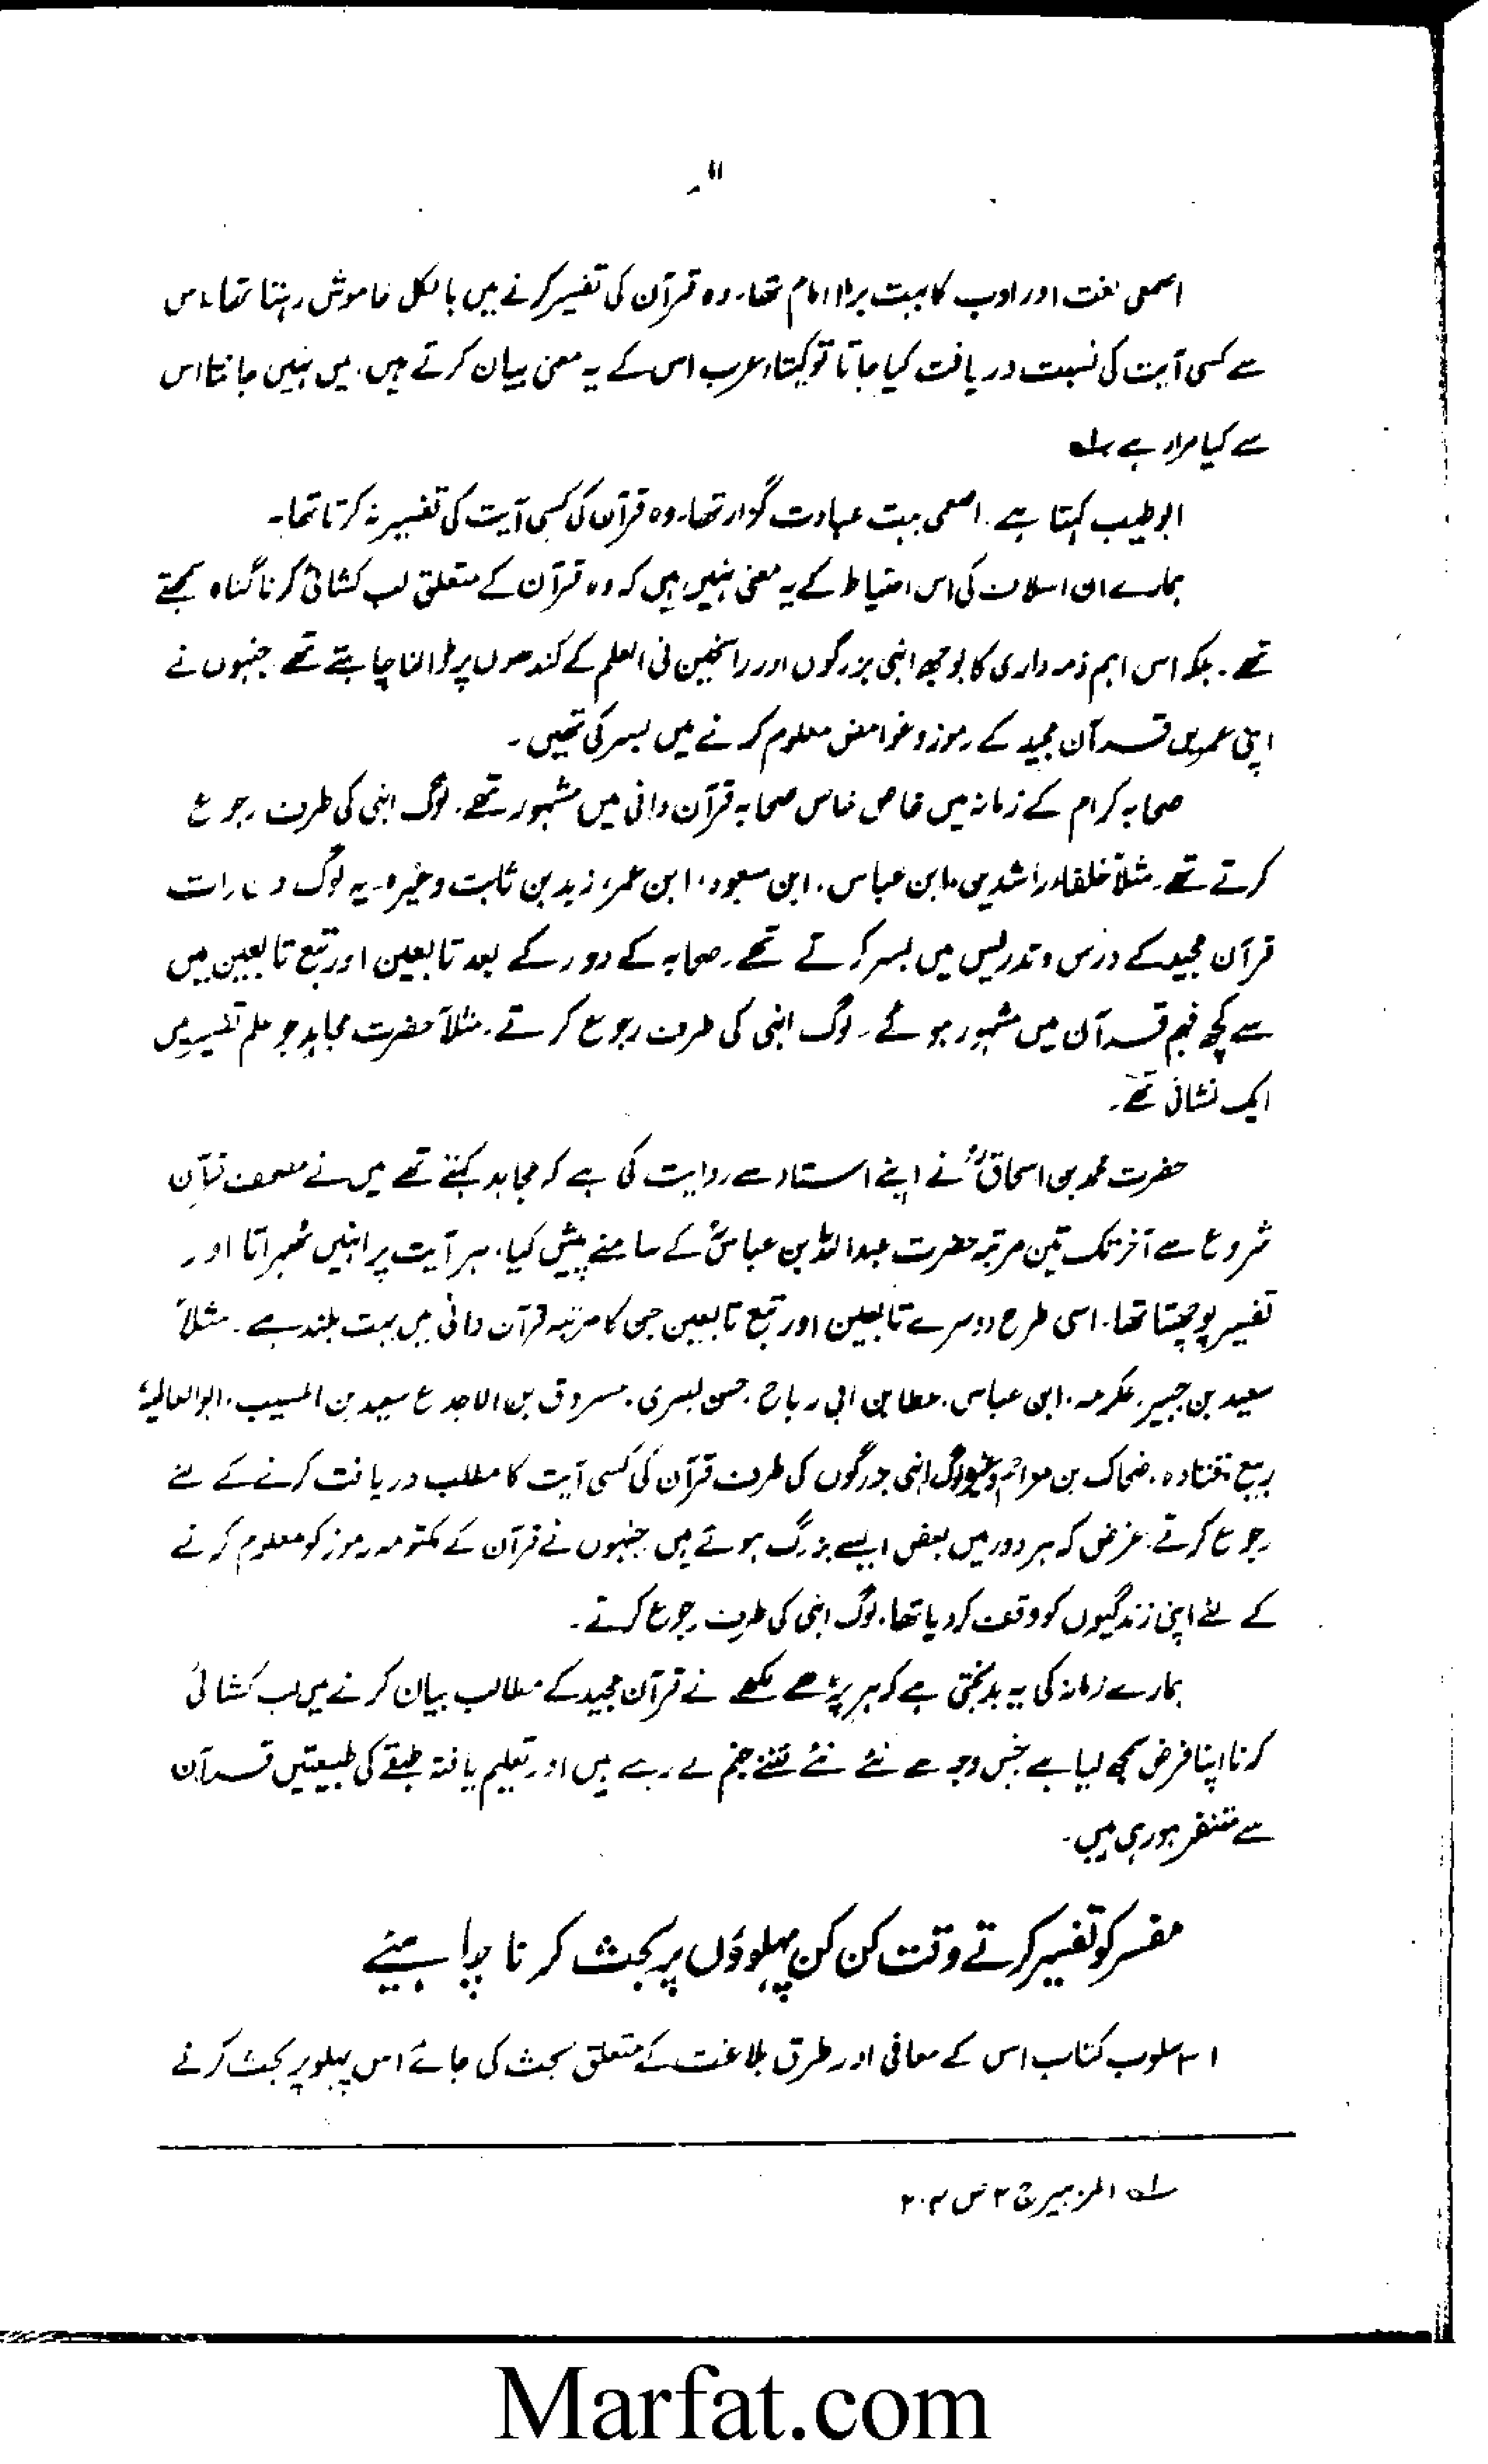 ۱۱
اصمعی لغت اور ادب کا بہت بڑا امام تھا۔ وہ قرآن کی تفسیر کرنے میں بالکل خاموش رہتا تھا، اس
سے کسی آیت کی نسبت دریافت کیا جاتا تو کہتا، عرب اس کے یہ معنی بیان کرتے ہیں، میں نہیں جانتا اس
سے کیا مراد ہے ؎۱
ابو طیب کہتا ہے۔ اصمعی بہت عبادت گزار تھا۔ وہ قرآن کی کسی آیت کی تفسیر نہ کرتا تھا۔
ہمارے ان اسلاف کی اس احتیاط کے یہ معنی نہیں ہیں کہ وہ قرآن کے متعلق لب کشائی کرنا گناہ سمجھتے
تھے۔ بلکہ اس اہم ذمہ داری کا بوجھ انہی بزرگوں اور راسخین فی العلم کے کندھوں پر ڈالنا چاہتے تھے جنہوں نے
اپنی عمریں قرآن مجید کے رموز و غوامض معلوم کرنے میں بسر کی تھیں۔
صحابہ کرام کے زمانہ میں خاص خاص صحابہ قرآن دانی میں مشہور تھے۔ لوگ انہی کی طرف رجوع
کرتے تھے۔ مثلاً خلفاء راشدین، ابن عباس، ابن مسعود، ابن عمر، زید بن ثابت وغیرہ۔ یہ لوگ دن رات
قرآن مجید کے درس و تدریس میں بسر کرتے تھے۔ صحابہ کے دور کے بعد تابعین اور تبع تابعین میں
سے کچھ فہم قرآن میں مشہور ہوئے۔ لوگ انہی کی طرف رجوع کرتے۔ مثلاً حضرت مجاہد جو علم تفسیر میں
ایک نشانی تھے۔
حضرت محمد بن اسحاقؒ نے اپنے استاد سے روایت کی ہے کہ مجاہد کہتے تھے میں نے مصحف قرآن
شروع سے آخر تک تین مرتبہ حضرت عبد اللہ بن عباسؓ کے سامنے پیش کیا، ہر آیت پر انہیں ٹھہراتا اور
تفسیر پوچھتا تھا۔ اسی طرح دوسرے تابعین اور تبع تابعین جن کا مرتبہ قرآن دانی میں بہت بلند ہے۔ مثلاً
سعید بن جبیر، عکرمہ، ابن عباس، عطا بن ابی رباح، حسن بصری، مسروق بن الاجدع سعید بن المسیب، ابوالعالیہ،
ربیع، قتادہ، ضحاک بن مزاحم وغیرہ لوگ انہی بزرگوں کی طرف قرآن کی کسی آیت کا مطلب دریافت کرنے کے لئے
رجوع کرتے۔ غرض کہ ہر دور میں بعض ایسے بزرگ ہوتے ہیں جنہوں نے قرآن کے مکتومہ رموز کو معلوم کرنے
کے لئے اپنی زندگیوں کو وقف کر دیا تھا۔ لوگ انہی کی طرف رجوع کرتے۔
ہمارے زمانہ کی یہ بدبختی ہے کہ ہر پڑھے لکھے نے قرآن مجید کے مطالب بیان کرنے میں لب کشائی
کرنا اپنا فرض سمجھ لیا ہے جس وجہ سے نئے نئے فتنے جنم لے رہے ہیں اور تعلیم یافتہ طبقے کی طبیعتیں قرآن
سے متنفر ہو رہی ہیں۔
مفسر کو تفسیر کرتے وقت کن کن پہلوؤں پر بحث کرنا چاہیئے
۱۔ اسلوب کتاب اس کے معانی اور طرق بلاغت کے متعلق بحث کی جائے اس پہلو پر بحث کرنے
؎۱ المزہر ج ۲ ص ۲۰۴
Marfat.com